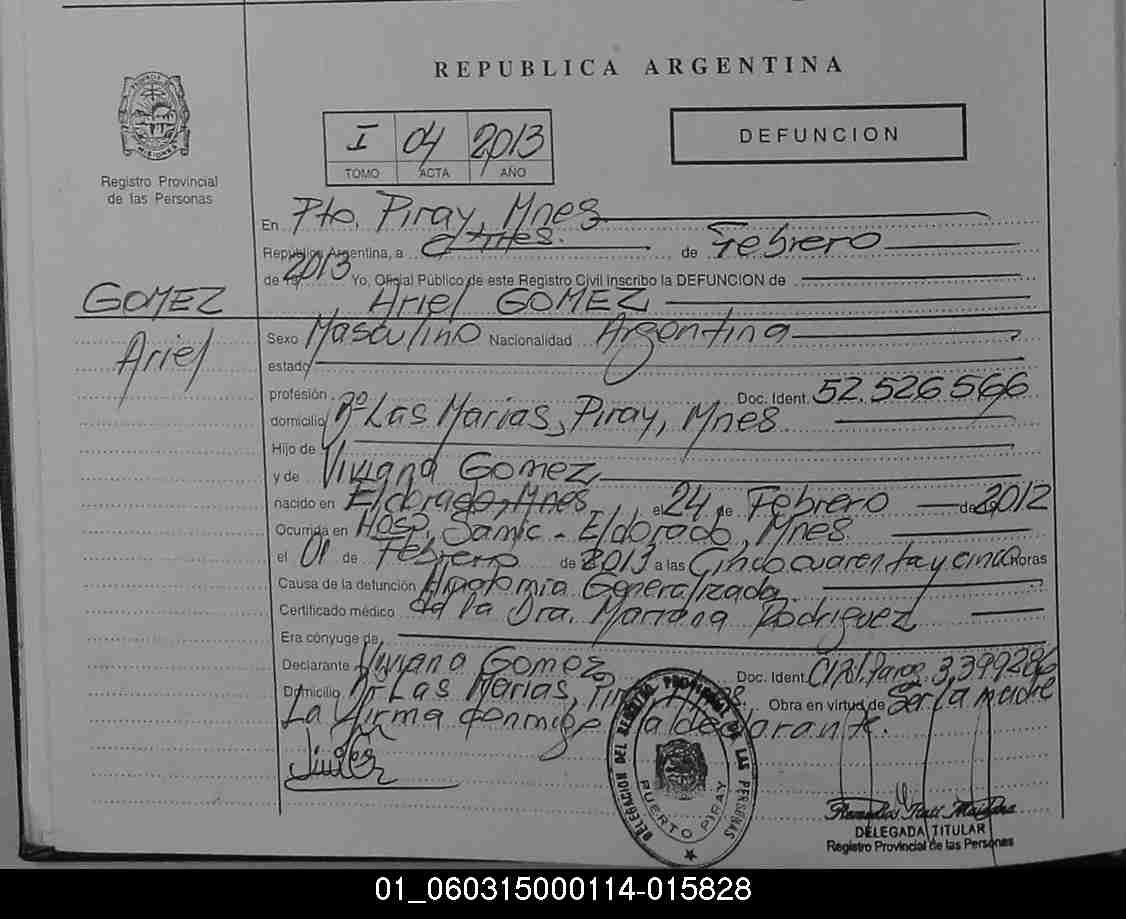 REPUBLICA ARGENTINA
I 04 2013
TOMO ACTA AÑO
DEFUNCION
PROVINCIA DE MISIONES
Registro Provincial
de las Personas
GOMEZ
Ariel
En Pto. Piray, Mnes
República Argentina, a tres. de Febrero
de 2013 Yo, Oficial Público de este Registro Civil inscribo la DEFUNCION de
Ariel GOMEZ
Sexo Masculino Nacionalidad Argentina
estado
profesión Doc. Ident. 52.526.566
domicilio Bº Las Marias, Piray, Mnes
Hijo de
y de Viviana Gomez
nacido en Eldorado, Mnes el 24 de Febrero de 2012
Ocurrida en Hosp. Samic - Eldorado, Mnes
el 01 de Febrero de 2013 a las Cinco cuarenta y cinco horas
Causa de la defunción Generalizada
Certificado médico de la Dra. Mariana Rodriguez
Era cónyuge de
Declarante Viviana Gomez Doc. Ident. C.I. Pol. Parag. 3,399286
Domicilio Bº Las Marias, Obra en virtud de Ser la madre
La firma conmigo la declarante.
DELEGACION DEL REGISTRO PROVINCIAL DE LAS PERSONAS
PUERTO PIRAY
DELEGADA TITULAR
Registro Provincial de las Personas
01_060315000114-015828